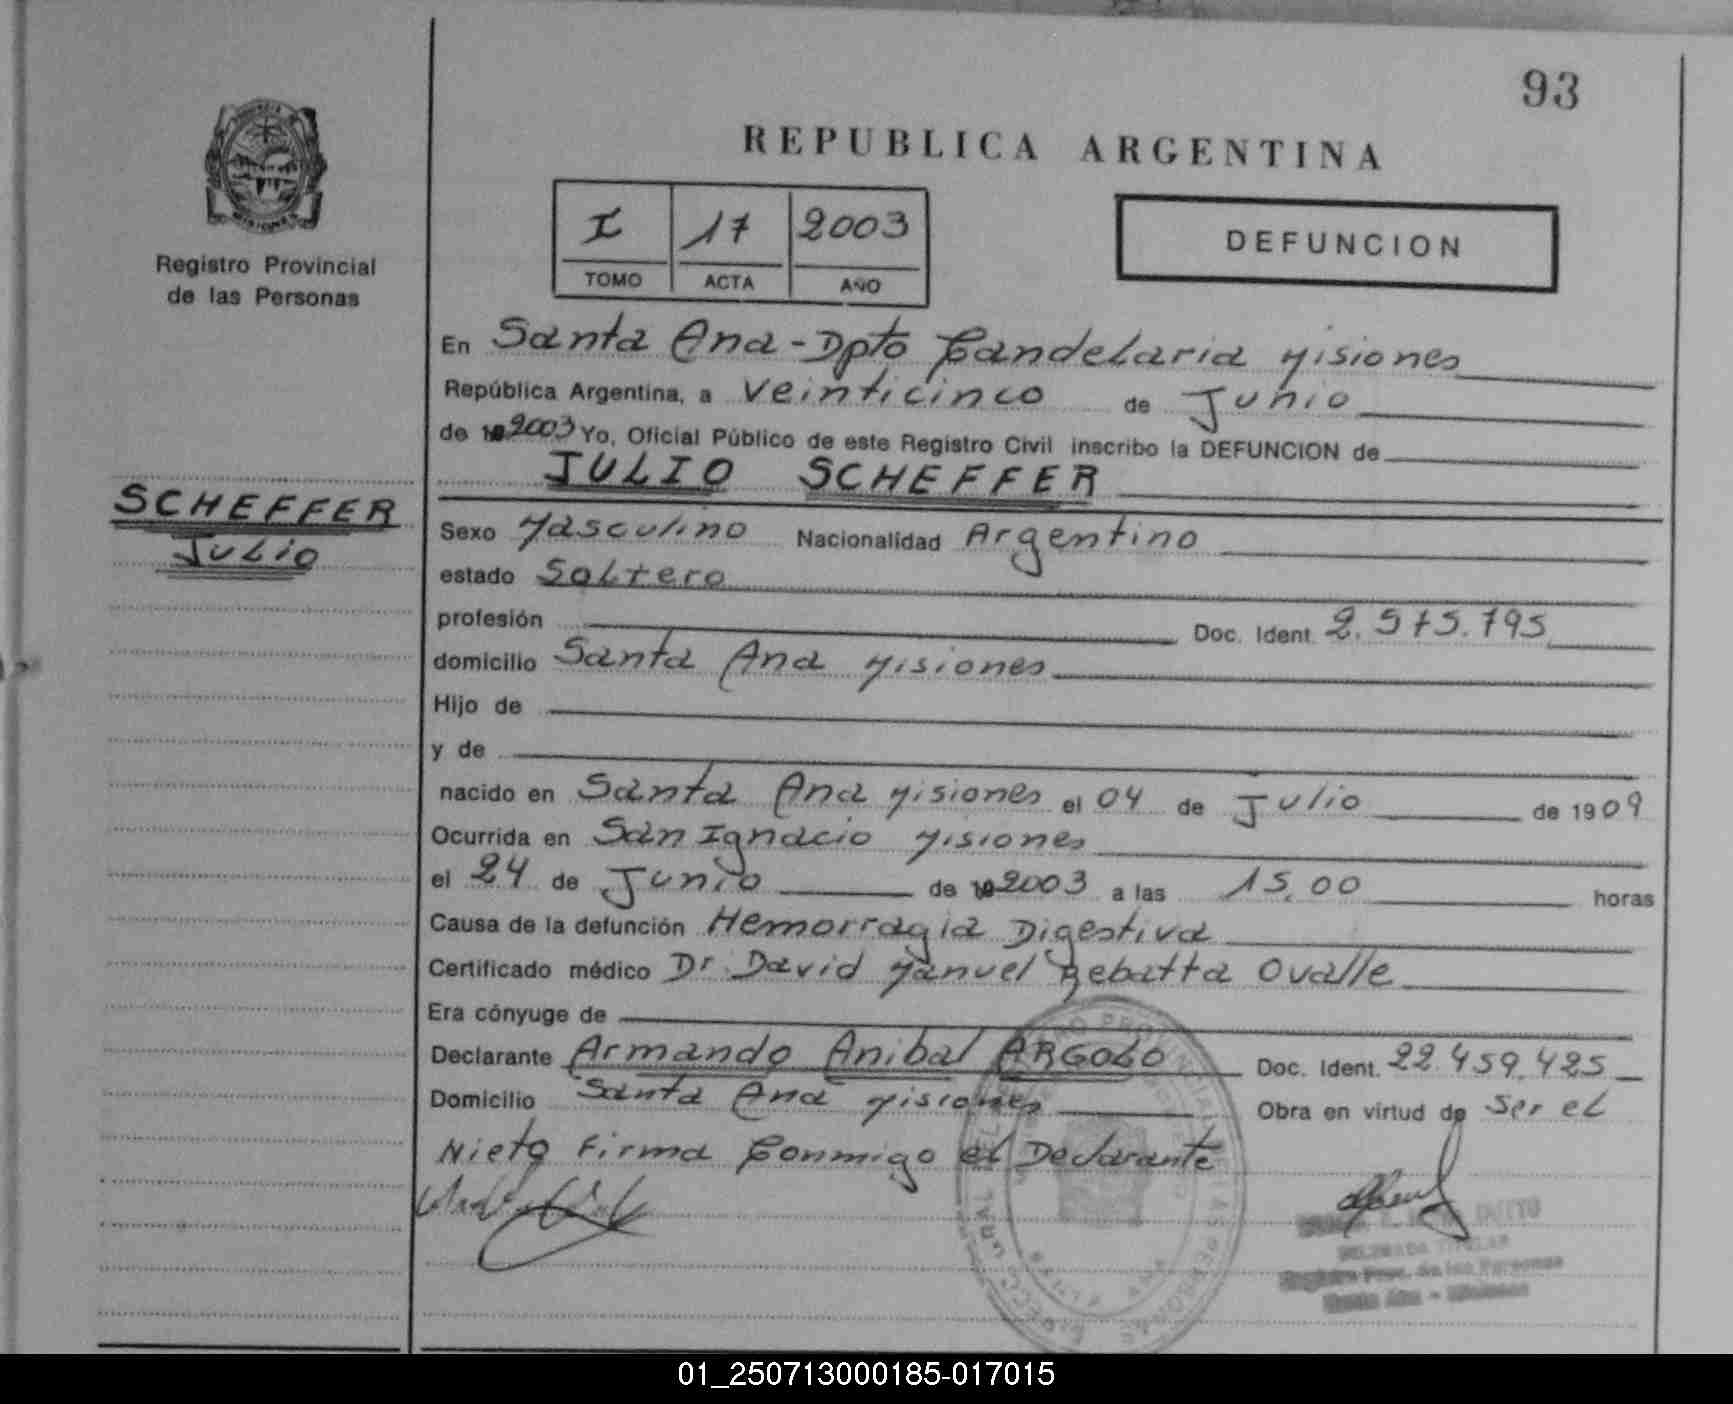 93
REPUBLICA ARGENTINA
I 17 2003
TOMO ACTA AÑO
DEFUNCION
Registro Provincial
de las Personas
SCHEFFER
Julio
En Santa Ana - Dpto Candelaria Misiones
República Argentina, a Veinticinco de Junio
de 2003 Yo, Oficial Público de este Registro Civil inscribo la DEFUNCION de
JULIO SCHEFFER
Sexo Masculino Nacionalidad Argentino
estado Soltero
profesión Doc. Ident. 2.575.795
domicilio Santa Ana Misiones
Hijo de
y de
nacido en Santa Ana Misiones el 04 de Julio de 1909
Ocurrida en San Ignacio Misiones
el 24 de Junio de 2003 a las 15,00 horas
Causa de la defunción Hemorragia Digestiva
Certificado médico Dr. David Manuel Ovalle
Era cónyuge de
Declarante Armando Anibal ARGOLO Doc. Ident. 22.459.425
Domicilio Santa Ana Misiones Obra en virtud de Ser el
Nieto Firma Conmigo el Declarante
Registro Prov. de las Personas
Santa Ana - Misiones
01_250713000185-017015